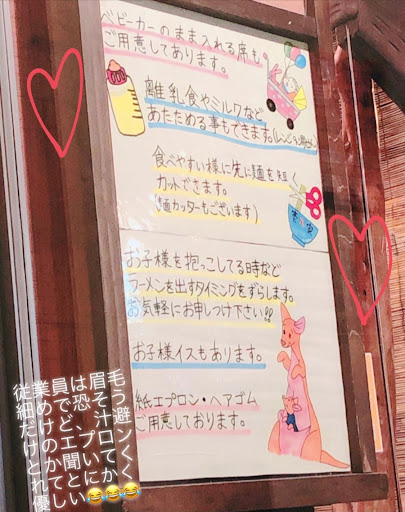 ベビーカーのまま入れる席も
ご用意してあります。
離乳食やミルクなど
あたためる事もできます。
食べやすい様に先に麺を短く
カットできます。
(麺カッターもございます)
お子様を抱っこしてる時など
ラーメンを出すタイミングをずらします。
お気軽にお申しつけ下さい!!
お子様イスもあります。
紙エプロン・ヘアゴム
ご用意しております。
従業員は眉毛
細めで恐そう
だけど、汁避
けのエプロン
とか聞いてく
れてとにかく
優しい😂😂😂